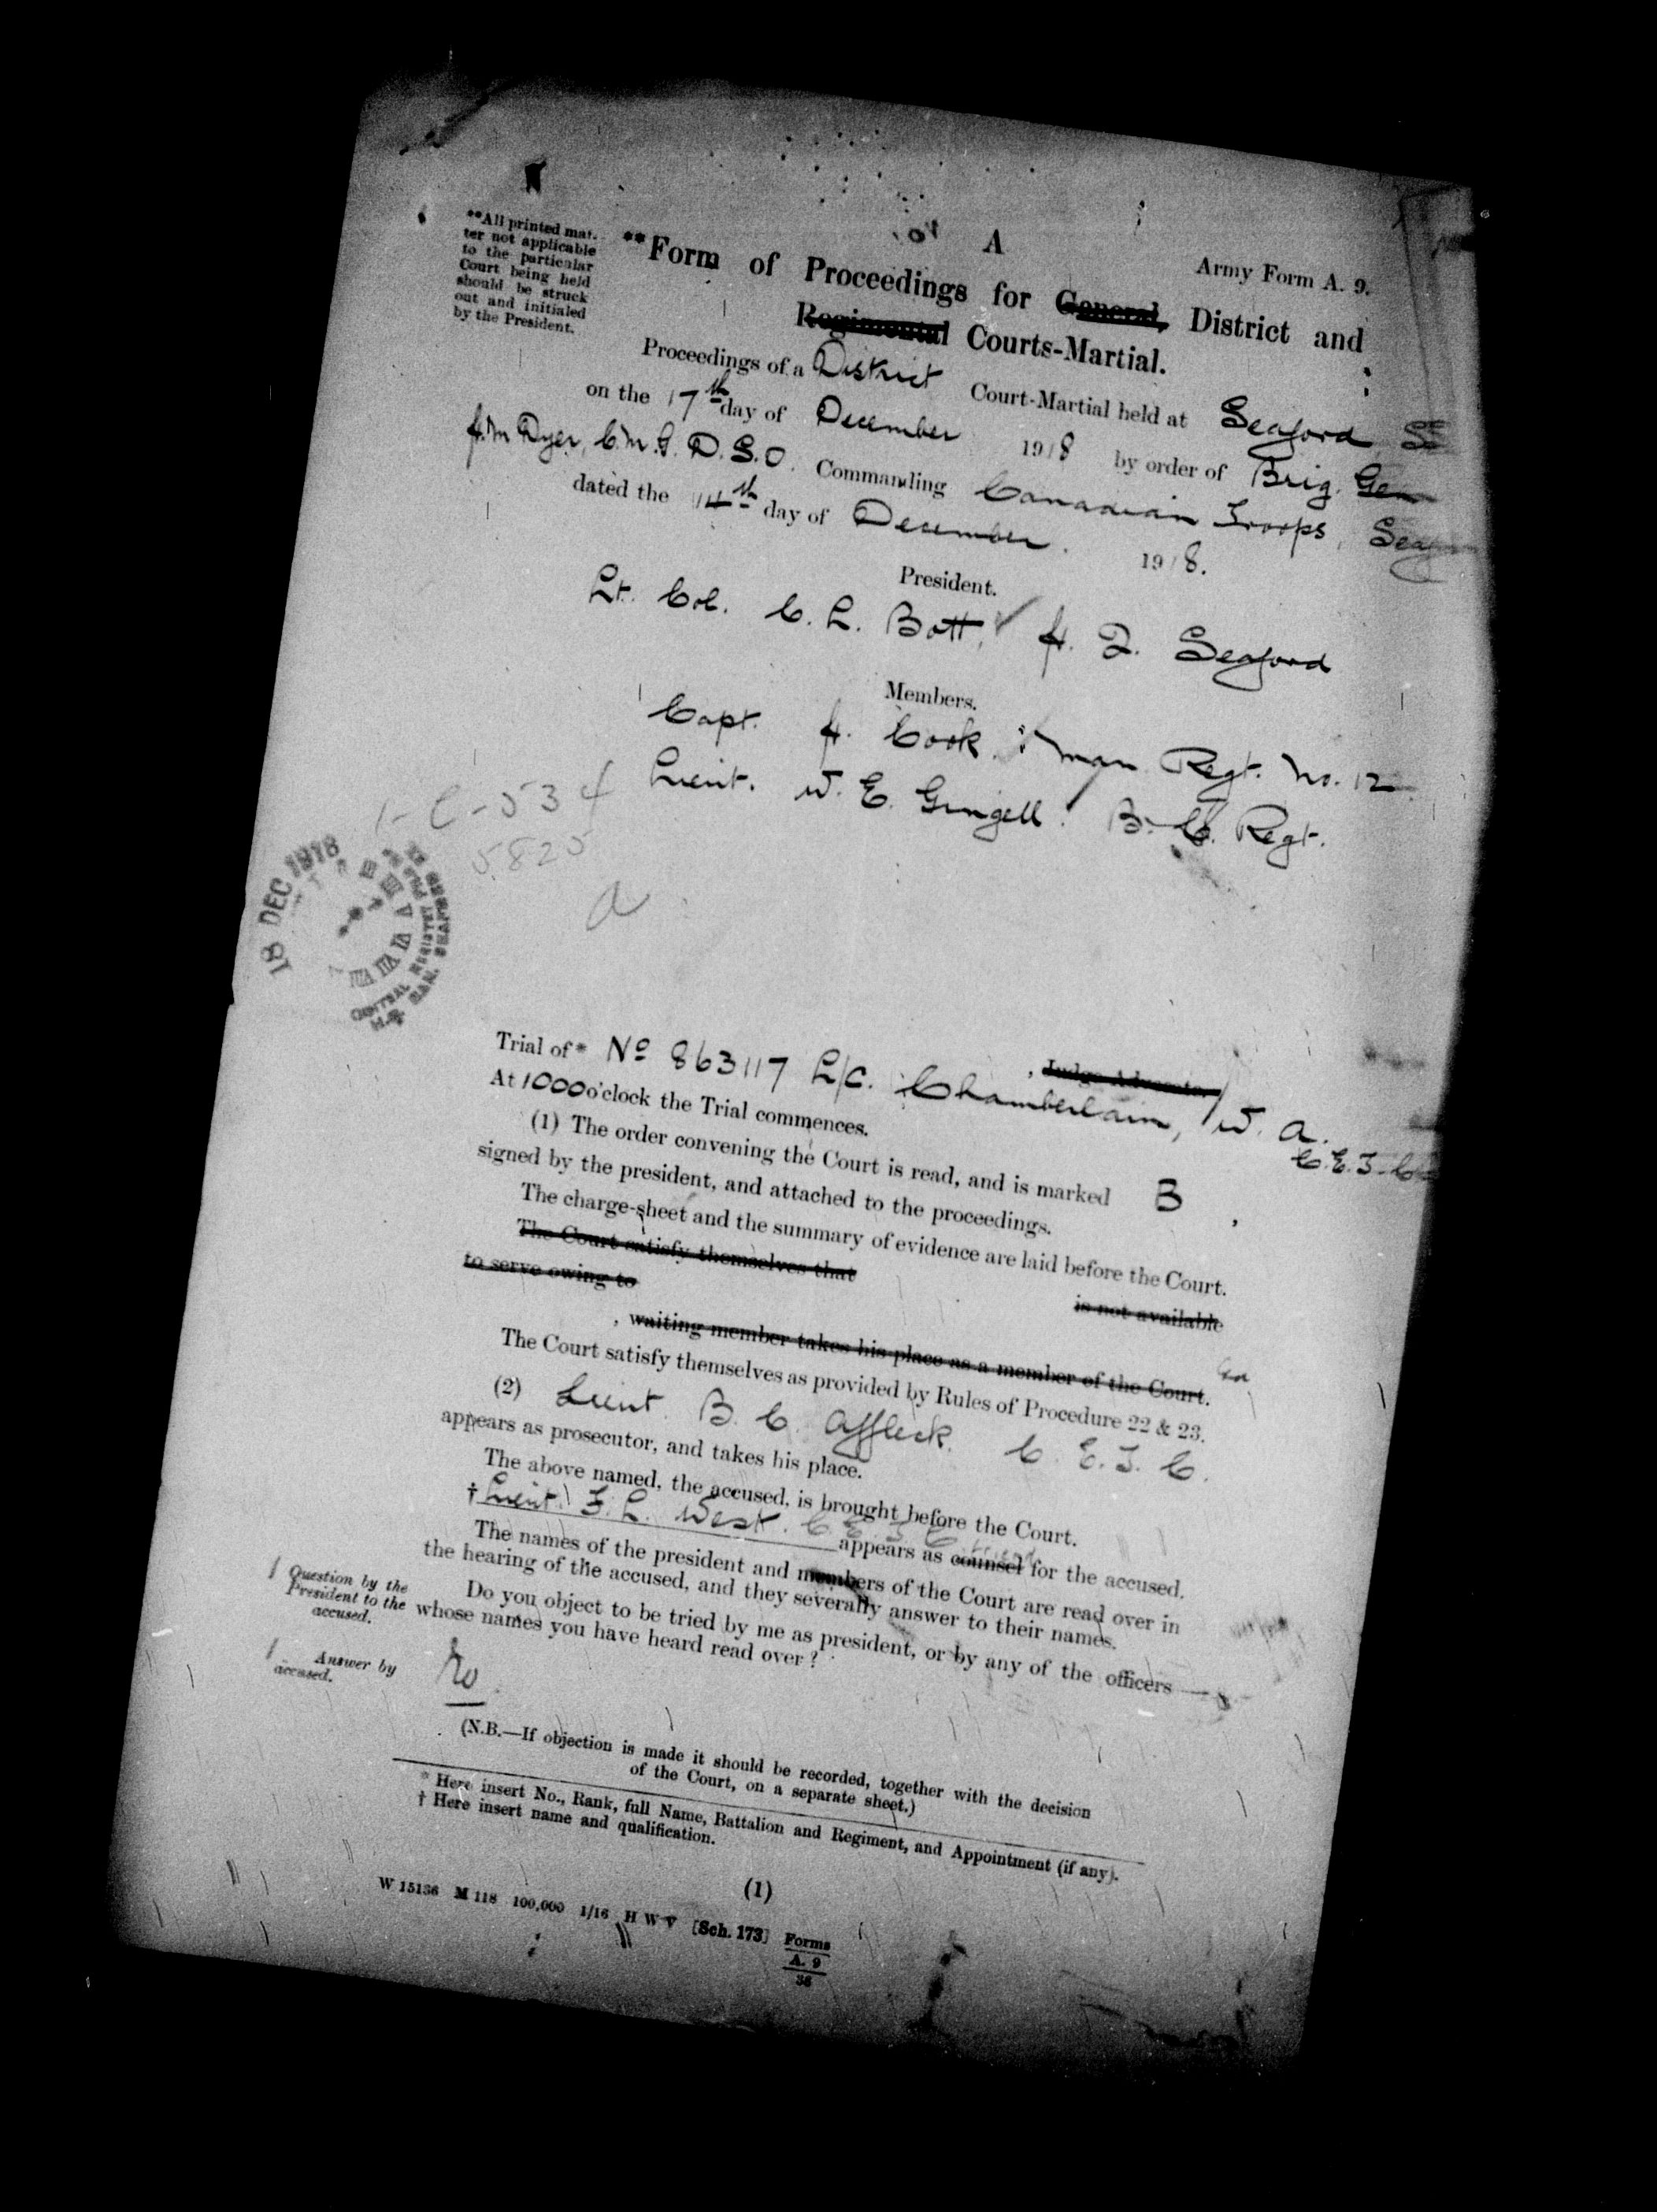 A
Army Form A. 9.
**All printed mat-
ter not applicable
to the particular
Court being held
should be struck
out and initialed
by the President.
**Form of Proceedings for General, District and
Regimental Courts-Martial.
Proceedings of a District Court-Martial held at Seaford
on the 17th day of December 1918 by order of Brig. Gen
H.M Dyer, C.M.G. D.S.O. Commanding Canadian Troops, Seaf
dated the 14th day of December. 1918.
President.
Lt. Col. C. L. Bott, H. Q. Seaford
Members.
Capt. H. Cook. Man Regt. No. 12
Lieut. W. E. Gingell. B. C. Regt.
1-C-534
5825
a
18 DEC 1918
CENTRAL REGISTRY
, Judge Advocate.
Trial of* No 863117 L/C. Chamberlain, W. A.
C.E.T.C
At 1000 o'clock the Trial commences.
(1) The order convening the Court is read, and is marked B ,
signed by the president, and attached to the proceedings.
The charge-sheet and the summary of evidence are laid before the Court.
The Court satisfy themselves that is not available
to serve owing to
, waiting member takes his place as a member of the Court.
The Court satisfy themselves as provided by Rules of Procedure 22 & 23.
(2) Lieut. B. C. Affleck. C. E. T. C.
appears as prosecutor, and takes his place.
The above named, the accused, is brought before the Court.
†Lieut. F. L. West. C. E. T. C appears as counsel for the accused.
The names of the president and members of the Court are read over in
the hearing of the accused, and they severally answer to their names.
Question by the
President to the
accused.
Do you object to be tried by me as president, or by any of the officers
whose names you have heard read over?
Answer by
accused.
No
(N.B.—If objection is made it should be recorded, together with the decision
of the Court, on a separate sheet.)
* Here insert No., Rank, full Name, Battalion and Regiment, and Appointment (if any).
† Here insert name and qualification.
(1)
W 15136 M 118 100,000 1/16 H W V [Sch. 173] Forms
A. 9
38